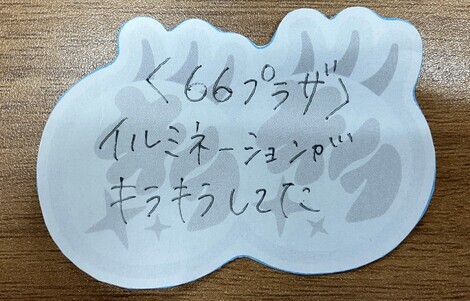 〈66プラザ〉
イルミネーションが
キラキラしてた